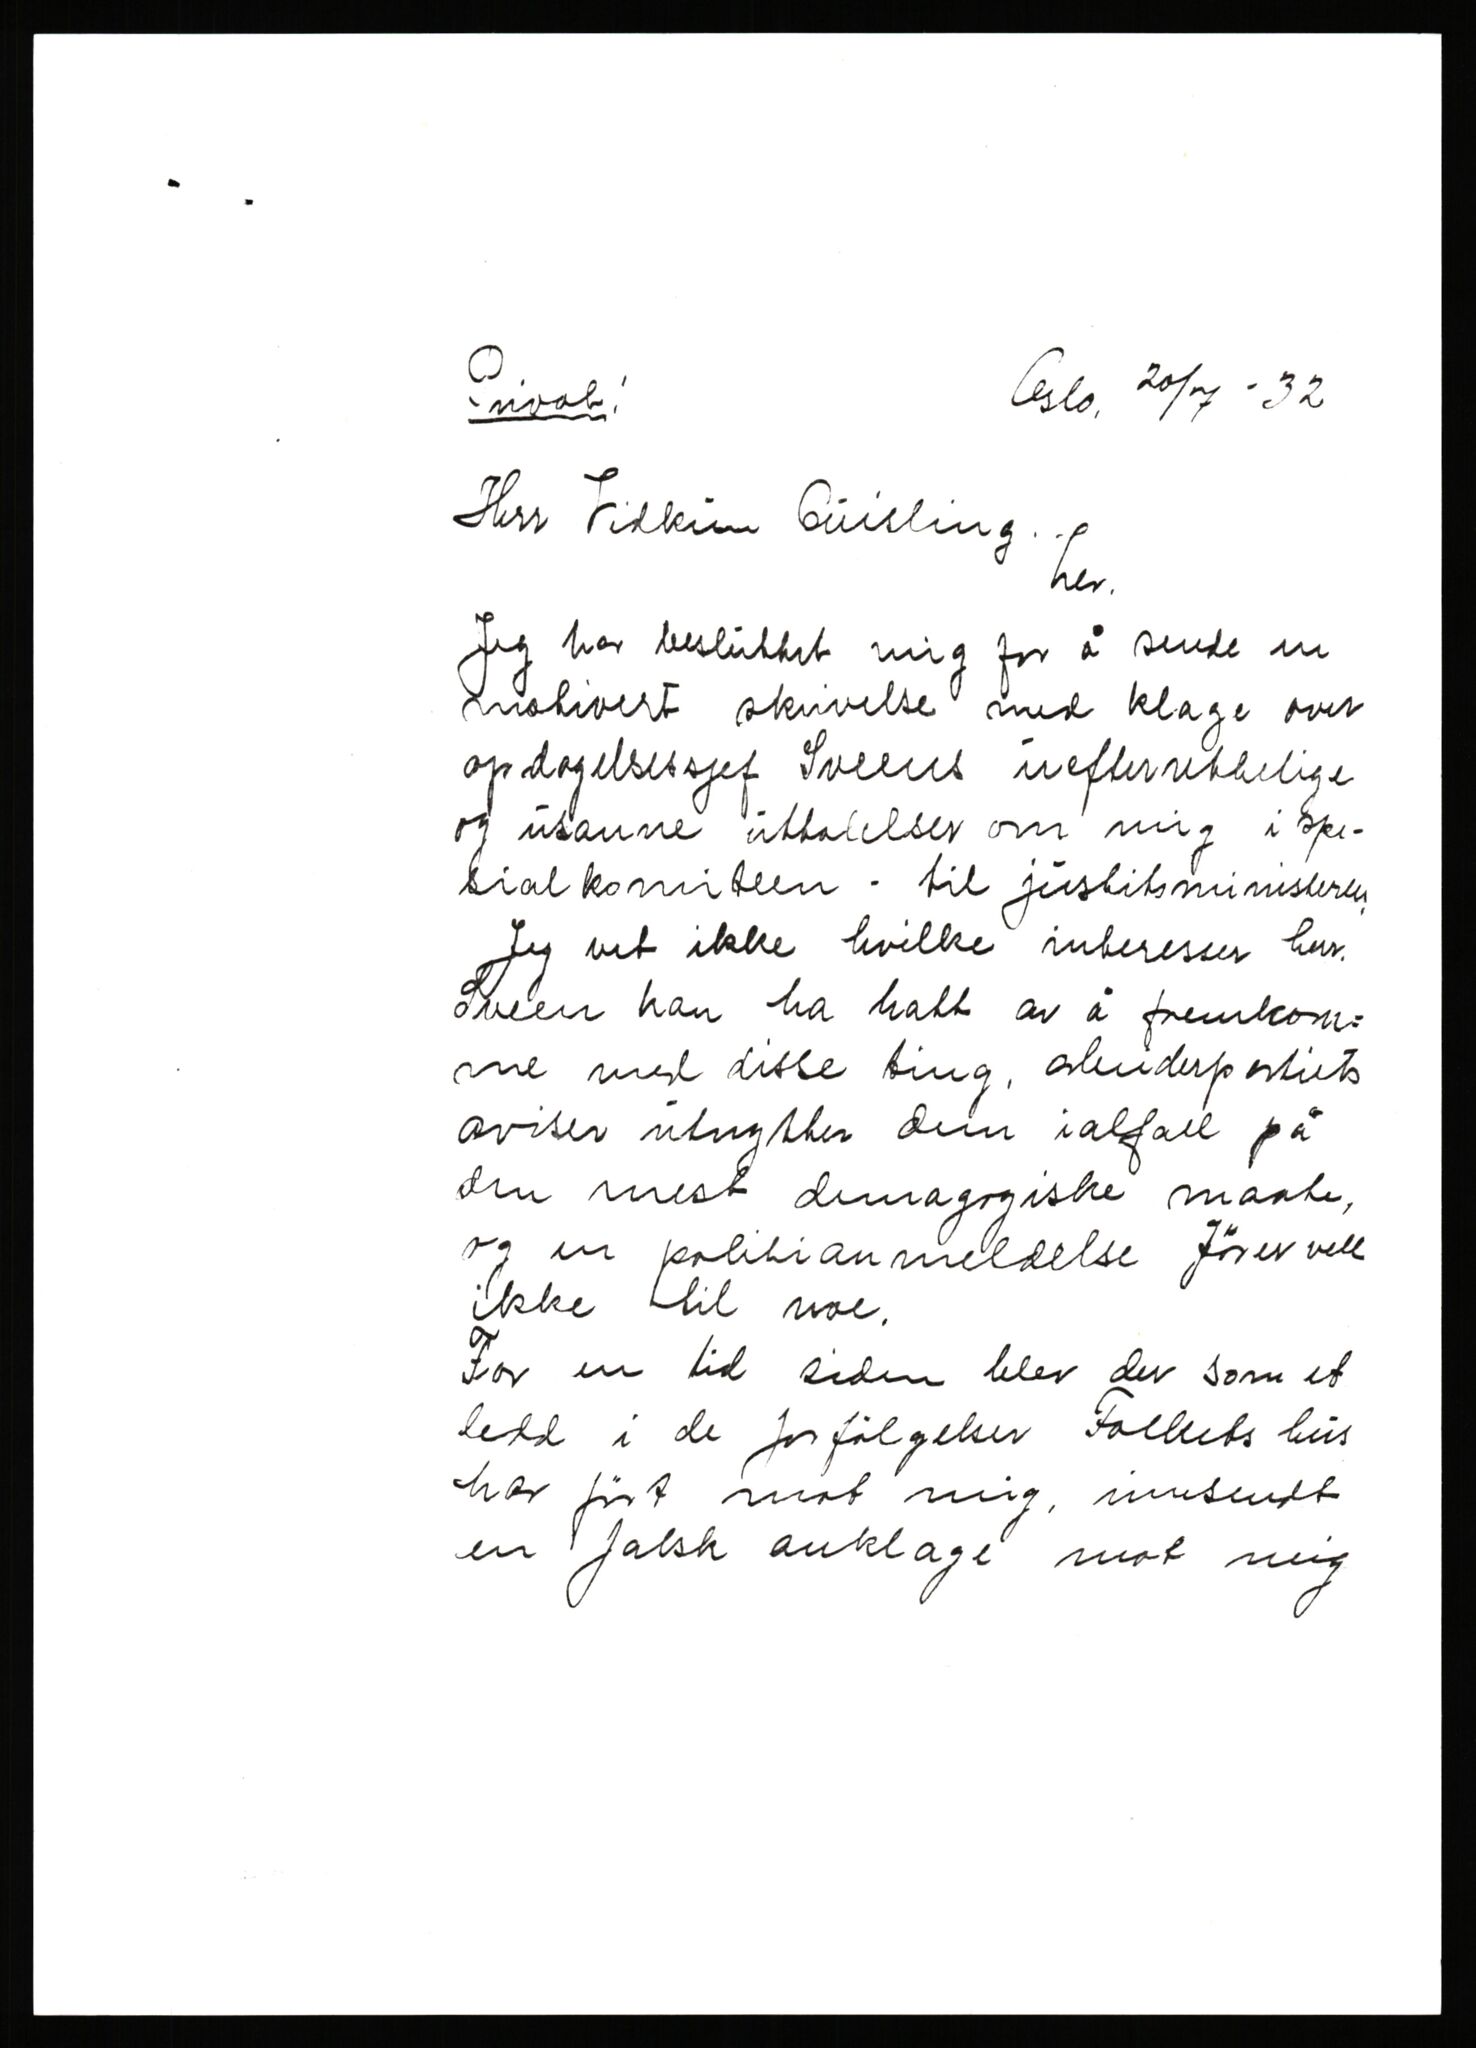 Privat! Oslo, 20/7 - 32
Herr Vidkun Quisling.
her.
Jeg har besluttet mig for å sende en
motivert skrivelse med klage over
opdagelsessjef Sveens uefterrettelige
og usanne uttalelser om mig i spe-
sialkomiteen - til justitsministeren.
Jeg vet ikke hvilke interesser herr.
Sveen kan ha hatt av å fremkom=
me med disse ting, arbeiderpartiets
aviser utnytter dem ialfall på
den mest demagogiske maate,
og en politianmeldelse förer vell
ikke til noe.
For en tid siden blev der som et
ledd i de forfölgelser Folkets hus
har fört mot mig, innsendt
en falsk anklage mot mig